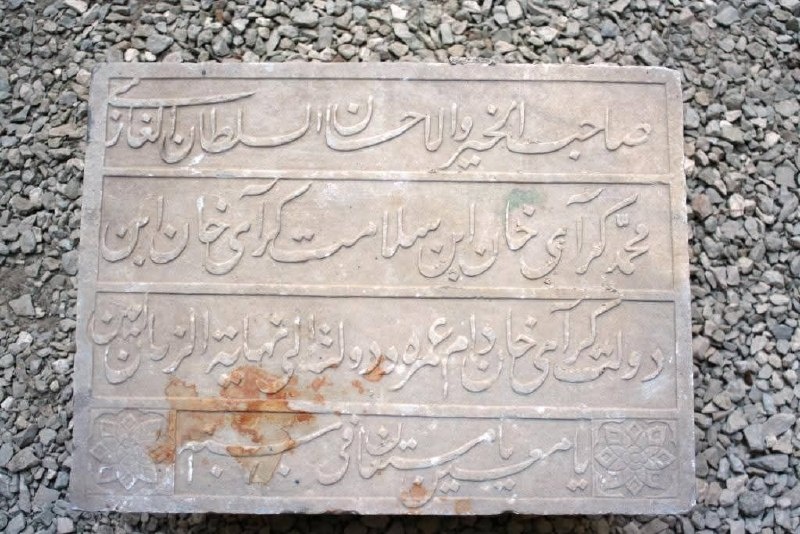 صاحب الخير والاحسان السلطان الغازي
محمّد كرآي خان ابن سلامت كرآي خان ابن
دولت كرآي خان دام عمره ودولته الى نهاية الزمان امين
يا معين يا مستعان في